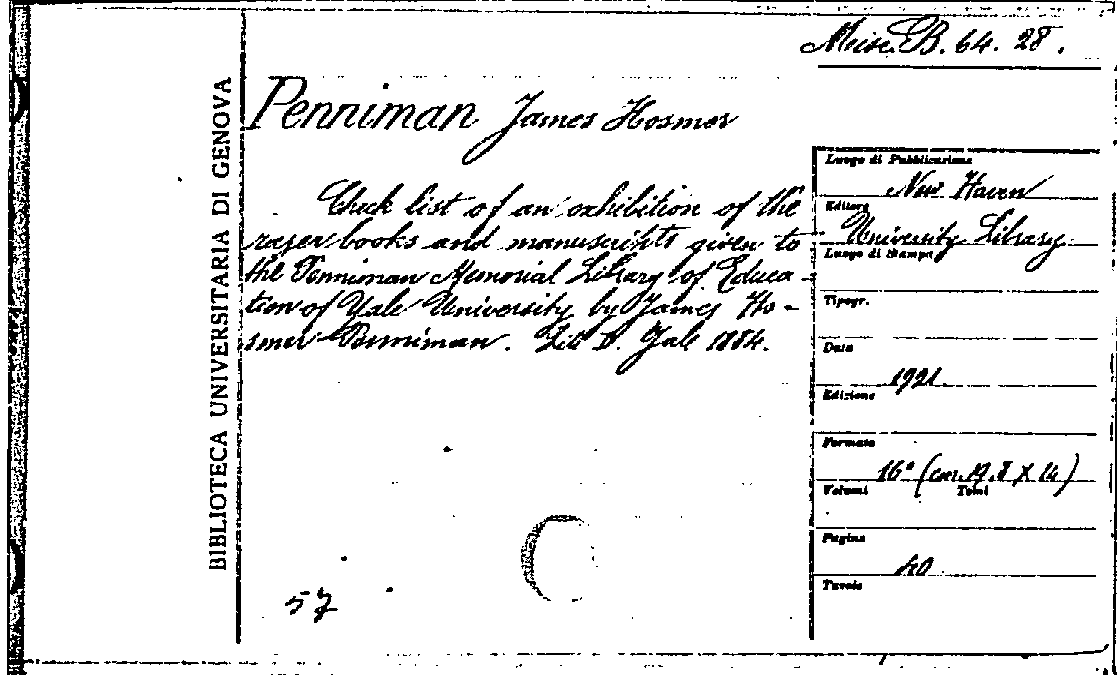 Misc. B. 64. 28.
BIBLIOTECA UNIVERSITARIA DI GENOVA
Penniman James Hosmer
Check list of an exhibition of the
rarer books and manuscripts given to
the Penniman Memorial Library of Educa-
tion of Yale University by James Ho-
smer Penniman. Litt D. Yale 1884.
57
Luogo di Pubblicazione
New Haven
Editore
University Library
Luogo di Stampa
Tipogr.
Data
1921
Edizione
Formato
16° (cm. 19.8 X 14)
Volumi Tomi
Pagine
40
Tavole